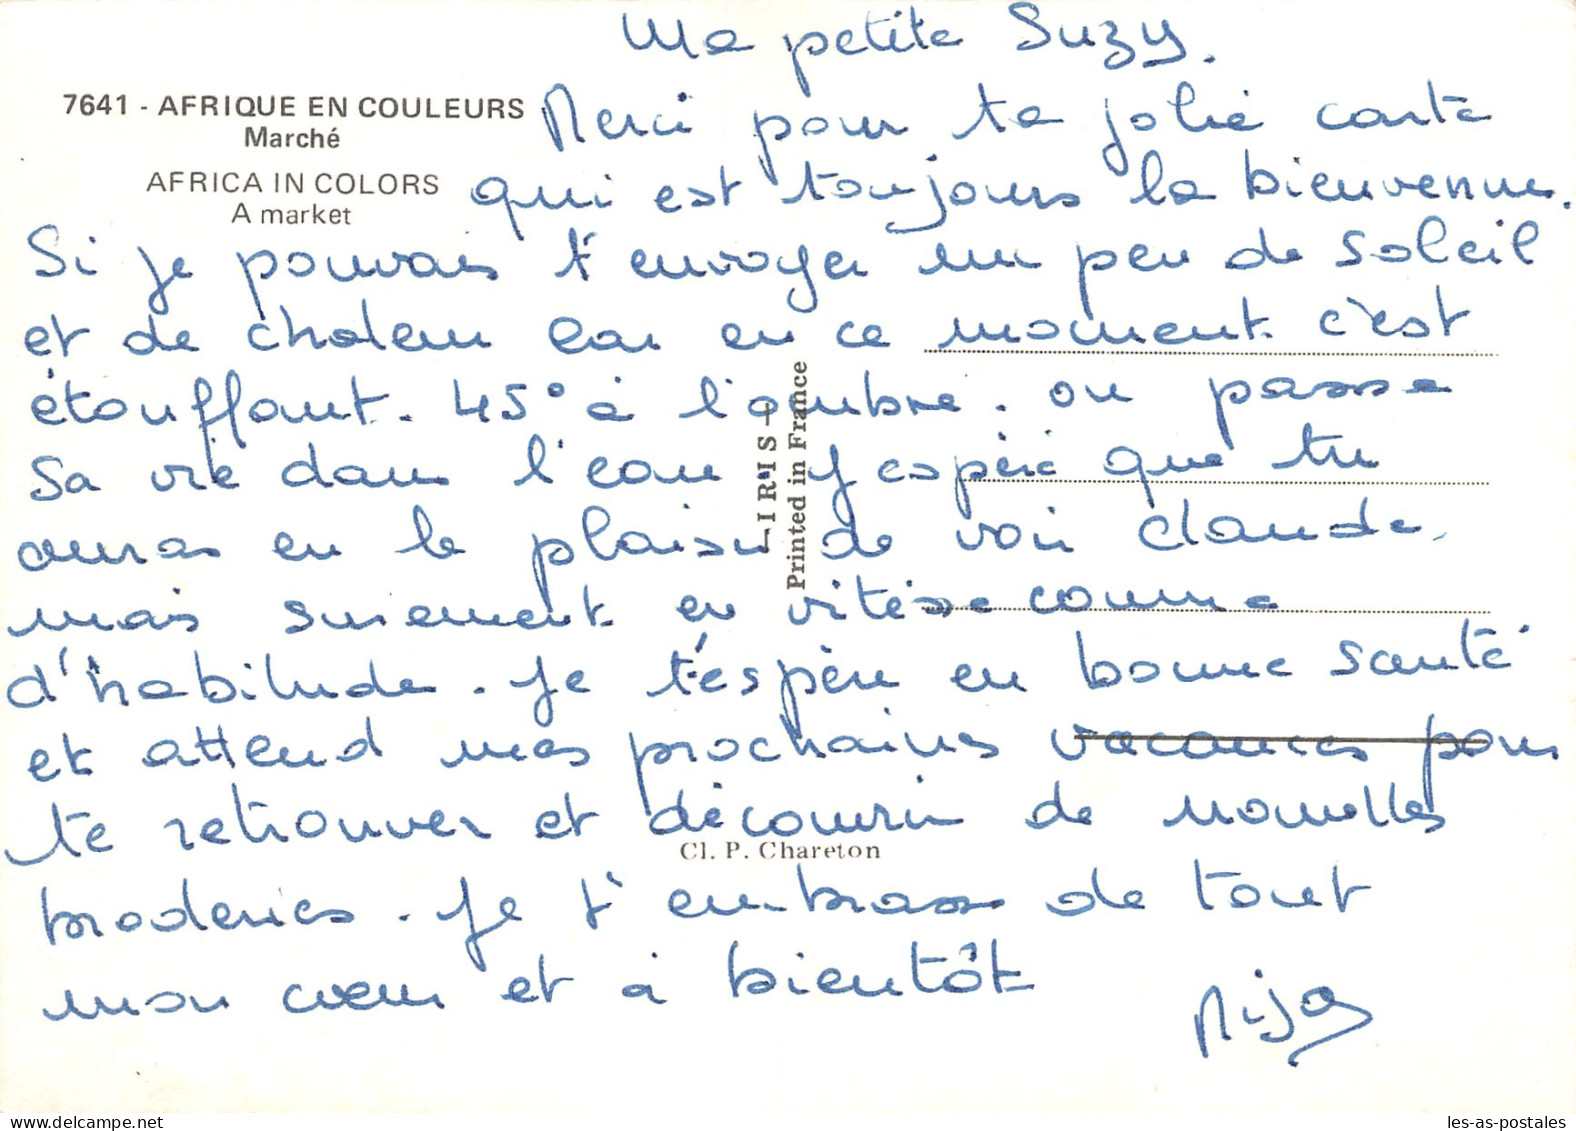 Ma petite Suzy.
7641 - AFRIQUE EN COULEURS
Marché
AFRICA IN COLORS
A market
Merci pour ta jolie carte
qui est toujours la bienvenue.
Si je pouvais t'envoyer un peu de soleil
et de chaleur car en ce moment c'est
étouffant. 45° à l'ombre. on passe
sa vie dans l'eau. J'espère que tu
auras eu le plaisir de voir Claude,
mais surement en vitesse comme
d'habitude. Je t'espère en bonne santé
et attend mes prochaines vacances pour
te retrouver et découvrir de nouvelles
broderies. Je t'embrasse de tout
mon cœur et à bientôt
IRIS
Printed in France
Cl. P. Chareton
les-as-postales